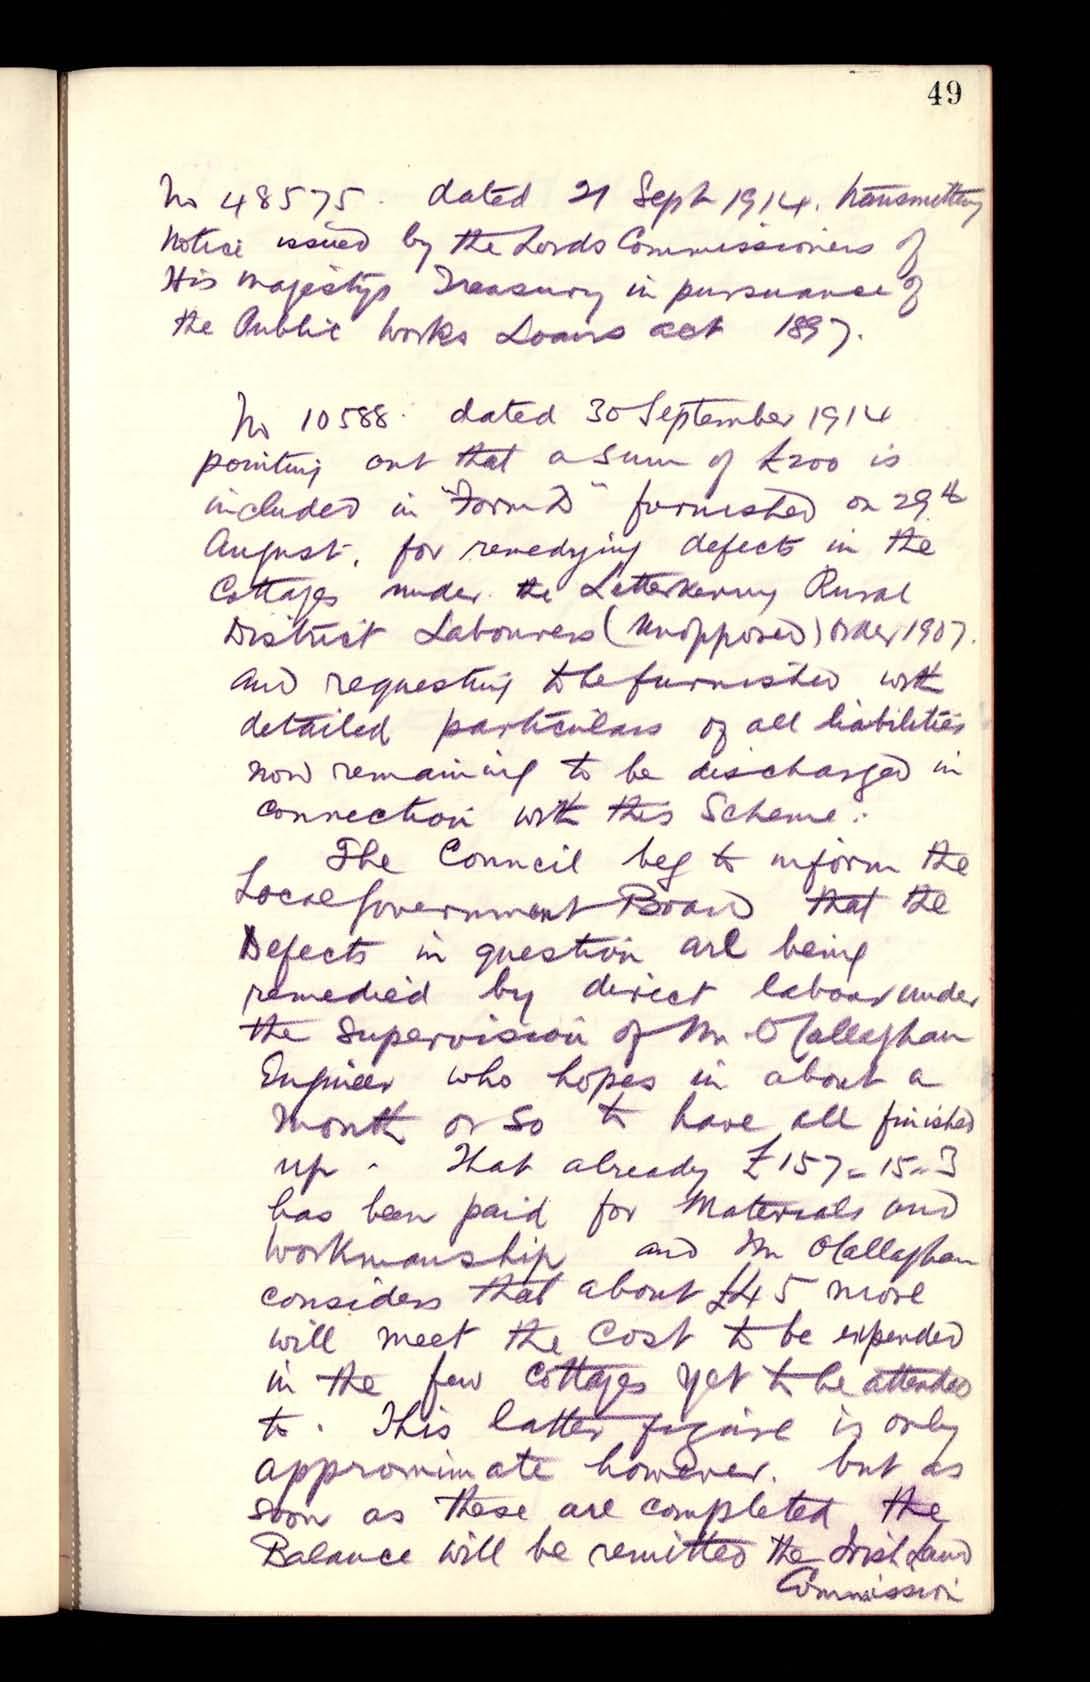 49
No 48575. dated 21 Sept 1914. transmitting
notice issued by the Lords Commissioners of
His Majestys Treasury in pursuance of
the Public Works Loans act 1897.
No 10588. dated 30 September 1914
pointing out that a sum of £200 is
included in "Form D" furnished on 29th
August, for remedying defects in the
Cottages under the Letterkenny Rural
District Labourers (Unopposed) Order 1907.
and requesting to be furnished with
detailed particulars of all liabilities
now remaining to be discharged in
connection with this Scheme.
The Council beg to inform the
Local Government Board that the
Defects in question are being
remedied by direct labour under
the Supervision of Mr O'Callaghan
Engineer who hopes in about a
month or so to have all finished
up. That already £157-15-3
has been paid for Materials and
Workmanship and Mr O'Callaghan
considers that about £45 more
will meet the Cost to be expended
in the few Cottages yet to be attended
to. This latter figure is only
approximate however. but as
soon as these are completed the
Balance will be remitted the Irish Land
Commission